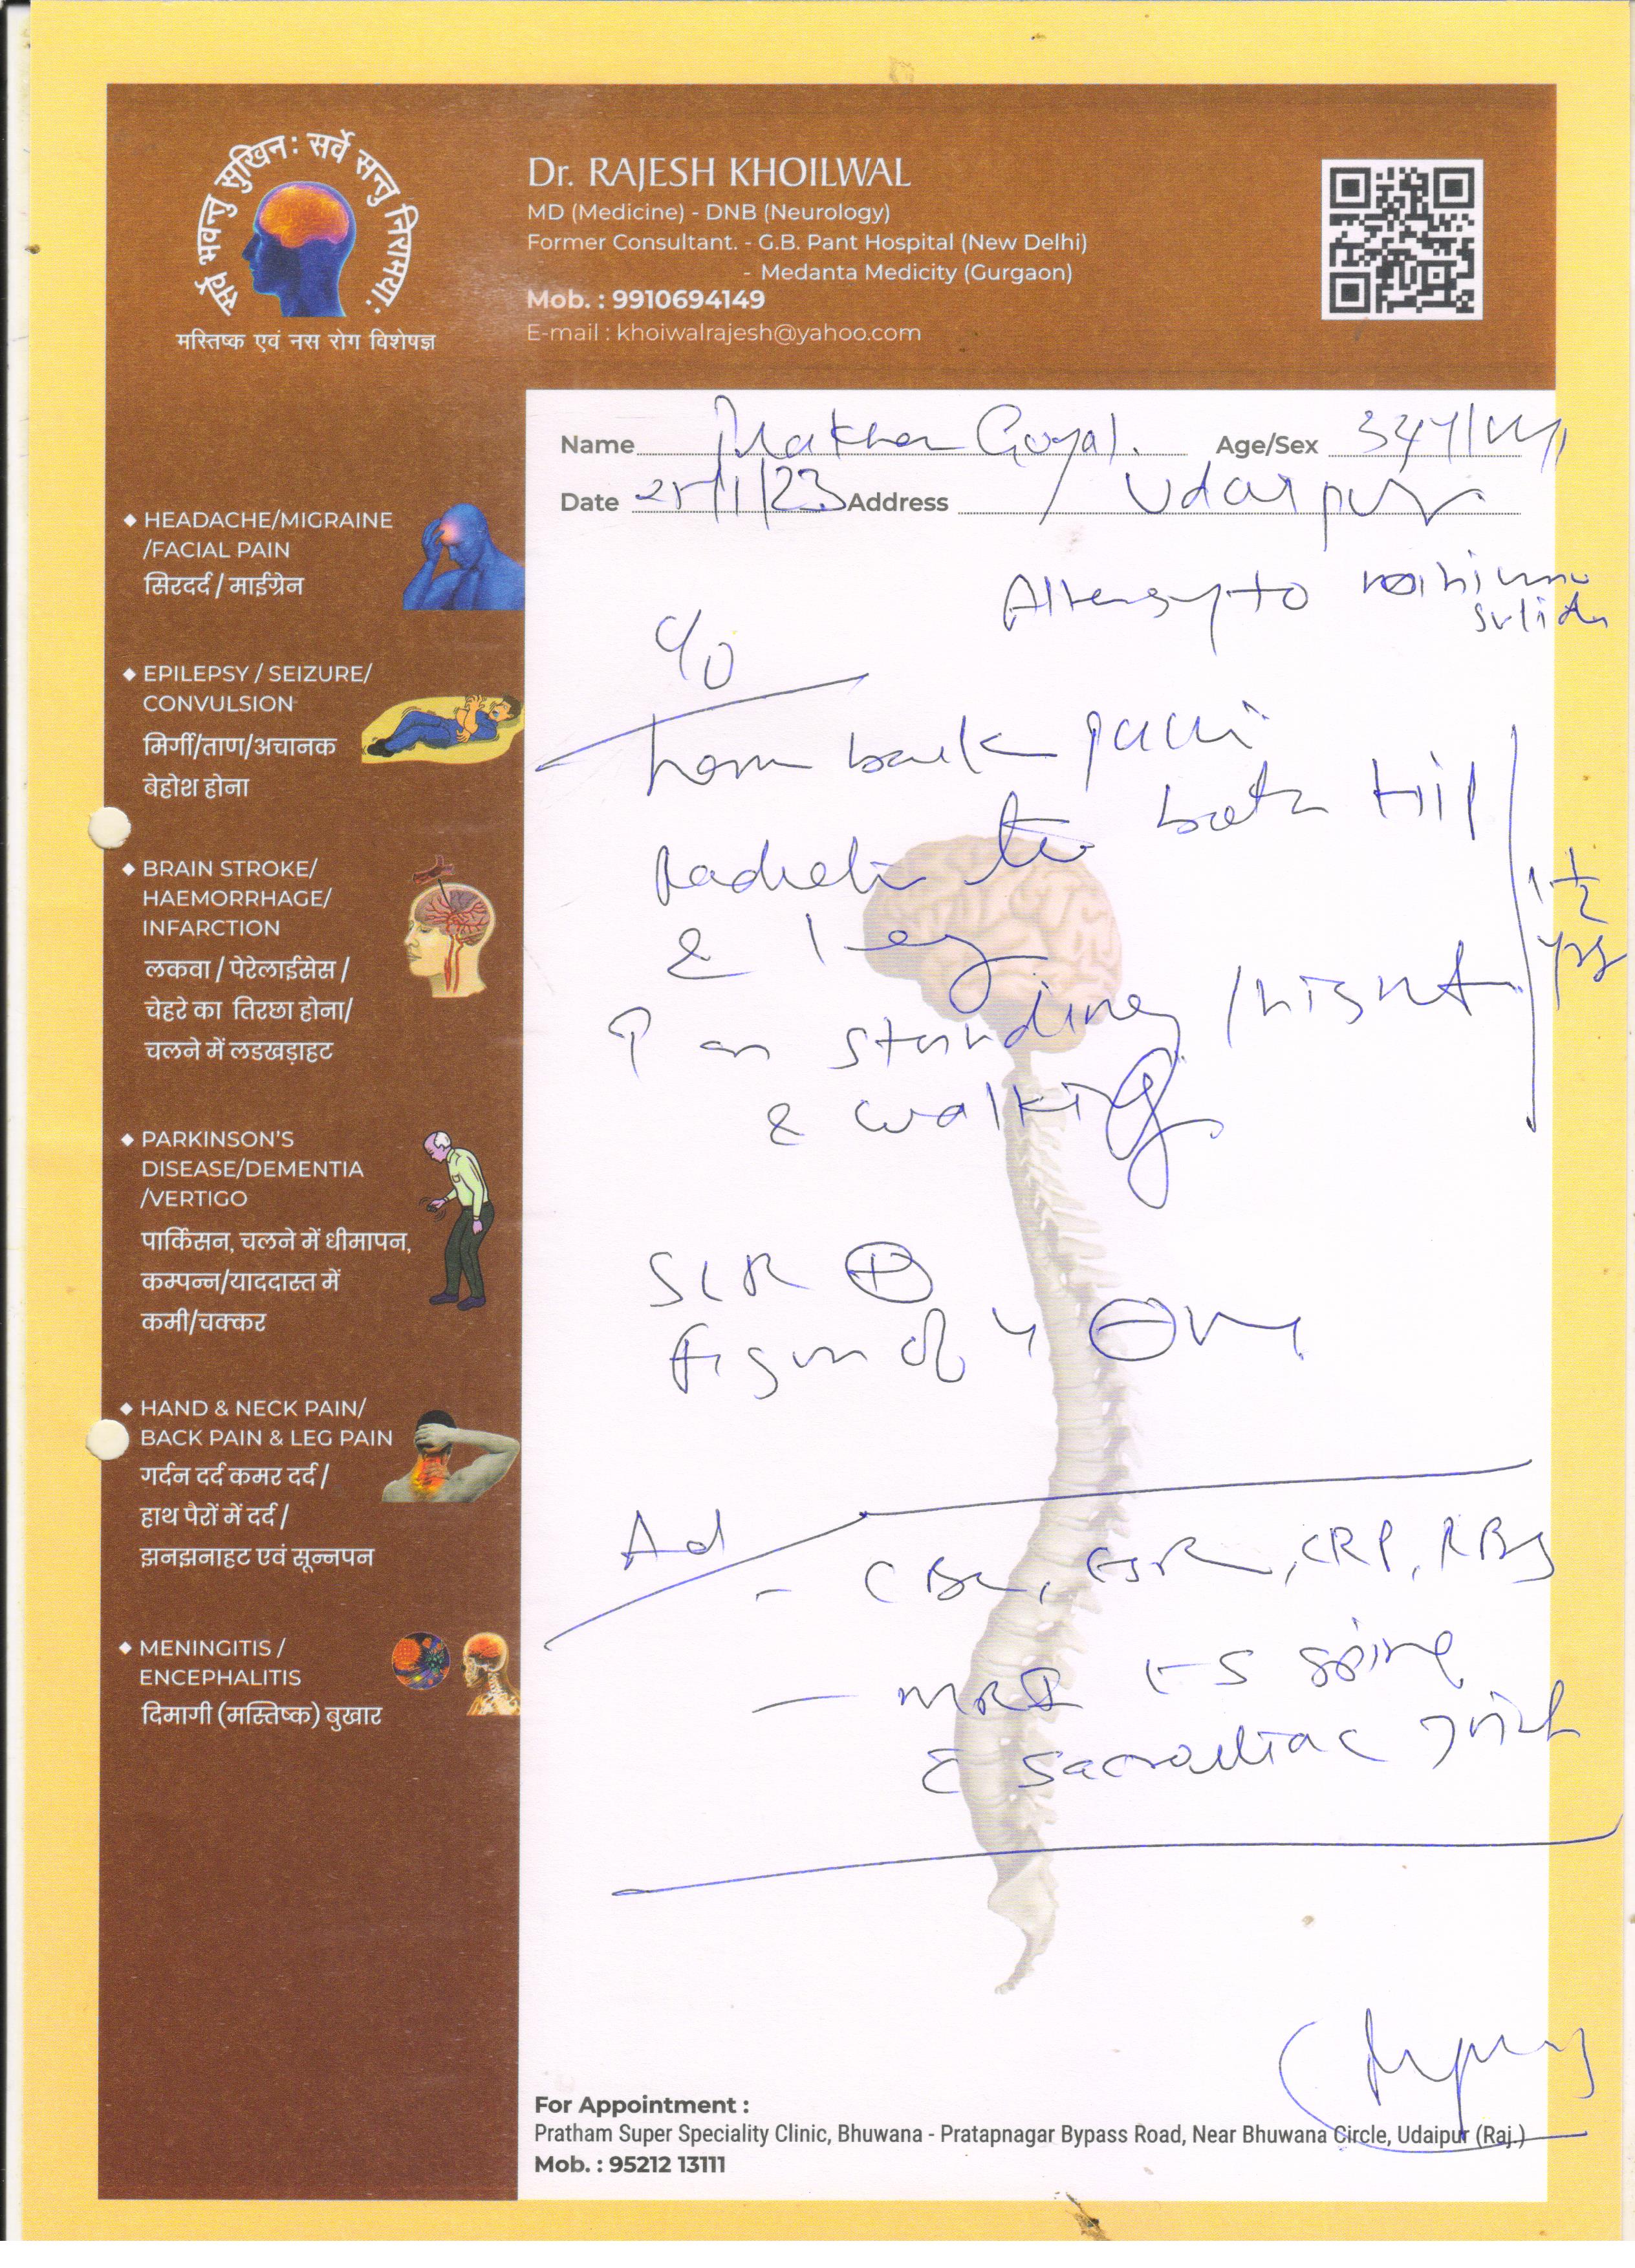 सर्वे भवन्तु सुखिन: सर्वे सन्तु निरामया:
मस्तिष्क एवं नस रोग विशेषज्ञ
Dr. RAJESH KHOILWAL
MD (Medicine) - DNB (Neurology)
Former Consultant. - G.B. Pant Hospital (New Delhi)
- Medanta Medicity (Gurgaon)
Mob. : 9910694149
E-mail : khoiwalrajesh@yahoo.com
Name Prakhar Goyal. Age/Sex 34y/M
Date /1/23 Address Udaipur
Allergy to
C/O
back pain
to both
& leg
↑ on standing /night
& walking
1 1/2
yrs
SLR ⊕
figure of 4 ⊖
Ad
- CBC, ESR, CRP, RBS
- MRI LS spine
c sacroiliac joint
◆ HEADACHE/MIGRAINE
/FACIAL PAIN
सिरदर्द / माईग्रेन
◆ EPILEPSY / SEIZURE/
CONVULSION
मिर्गी/ताण/अचानक
बेहोश होना
◆ BRAIN STROKE/
HAEMORRHAGE/
INFARCTION
लकवा / पेरेलाईसेस /
चेहरे का तिरछा होना/
चलने में लडखड़ाहट
◆ PARKINSON'S
DISEASE/DEMENTIA
/VERTIGO
पार्किसन, चलने में धीमापन,
कम्पन्न/याददास्त में
कमी/चक्कर
◆ HAND & NECK PAIN/
BACK PAIN & LEG PAIN
गर्दन दर्द कमर दर्द /
हाथ पैरों में दर्द /
झनझनाहट एवं सून्नपन
◆ MENINGITIS /
ENCEPHALITIS
दिमागी (मस्तिष्क) बुखार
For Appointment :
Pratham Super Speciality Clinic, Bhuwana - Pratapnagar Bypass Road, Near Bhuwana Circle, Udaipur (Raj.)
Mob. : 95212 13111